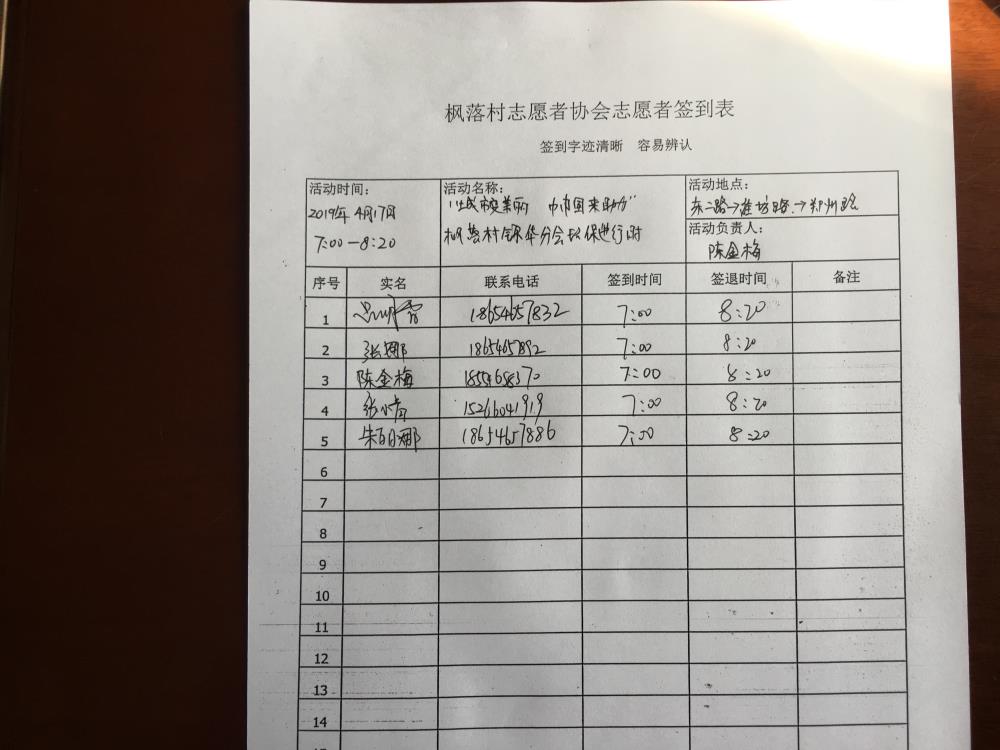 枫落村志愿者协会志愿者签到表
签到字迹清晰 容易辨认
活动时间: 活动名称: 活动地点:
2019年4月17日 "城校美丽 巾帼来助力" 东二路→潍坊路→郑州路
7:00—8:20 枫落村 分会环保进行时 活动负责人:
陈金梅
序号 实名 联系电话 签到时间 签退时间 备注
1 18654657832 7:00 8:20
2 张娜 18654657892 7:00 8:20
3 陈金梅 18554658370 7:00 8:20
4 15266041919 7:00 8:20
5 18654657886 7:00 8:20
6
7
8
9
10
11
12
13
14